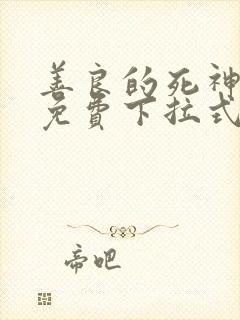 善良的死神
免费下拉式
帝吧